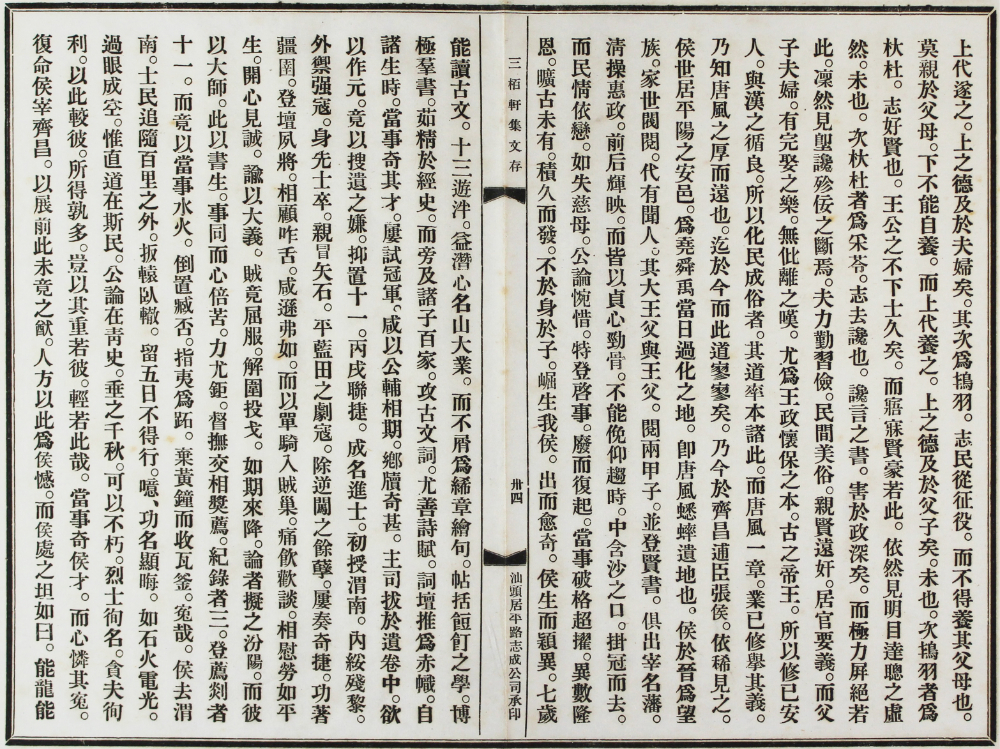 上代遂之。上之德及於夫婦矣。其次爲鴇羽。志民從征役。而不得養其父母也。
莫親於父母。下不能自養。而上代養之。上之德及於父子矣。未也。次鴇羽者爲
杕杜。志好賢也。王公之不下士久矣。而寤寐賢豪若此。依然見明目達聰之虛
然。未也。次杕杜者爲采苓。志去讒也。讒言之書。害於政深矣。而極力屏絕若
此。凜然見堲讒殄佞之斷焉。夫力勤習儉。民間美俗。親賢遠奸。居官要義。而父
子夫婦。有完娶之樂。無仳離之嘆。尤爲王政懷保之本。古之帝王。所以修已安
人。與漢之循良。所以化民成俗者。其道率本諸此。而唐風一章。業已修舉其義。
乃知唐風之厚而遠也。迄於今而此道寥寥矣。乃今於齊昌逋臣張侯。依稀見之。
侯世居平陽之安邑。爲堯舜禹當日過化之地。卽唐風蟋蟀遺地也。侯於晉爲望
族。家世閥閱。代有聞人。其大王父與王父。閱兩甲子。並登賢書。俱出宰名藩。
淸操惠政。前后輝映。而皆以貞心勁骨。不能俛仰趨時。中含沙之口。掛冠而去。
而民情依戀。如失慈母。公論惋惜。特登啓事。廢而復起。當事破格超擢。異數隆
恩。曠古未有。積久而發。不於身於子。崛生我侯。出而愈奇。侯生而穎異。七歲
三栢軒集文存
卅四
汕頭居平路志成公司承印
能讀古文。十三遊泮。益潛心名山大業。而不屑爲絺章繪句。帖括餖飣之學。博
極羣書。茹精於經史。而旁及諸子百家。攻古文詞。尤善詩賦。詞壇推爲赤幟。自
諸生時。當事奇其才。屢試冠軍。咸以公輔相期。鄉牘奇甚。主司拔於遺卷中。欲
以作元。竟以搜遺之嫌。抑置十一。丙戌聯捷。成名進士。初授渭南。內綏殘黎。
外禦强寇。身先士卒。親冒矢石。平藍田之劇寇。除逆闖之餘孽。屢奏奇捷。功著
疆圉。登壇夙將。相顧咋舌。咸遜弗如。而以單騎入賊巢。痛飮歡談。相慰勞如平
生。開心見誠。諭以大義。賊竟屈服。解圍投戈。如期來降。論者擬之汾陽。而彼
以大師。此以書生。事同而心倍苦。力尤鉅。督撫交相奬薦。紀錄者三。登薦剡者
十一。而竟以當事水火。倒置臧否。指夷爲跖。棄黃鐘而收瓦釜。寃哉。侯去渭
南。士民追隨百里之外。扳轅臥轍。留五日不得行。噫、功名顯晦。如石火電光。
過眼成空。惟直道在斯民。公論在靑史。垂之千秋。可以不朽。烈士徇名。貪夫徇
利。以此較彼。所得孰多。豈以其重若彼。輕若此哉。當事奇侯才。而心憐其寃。
復命侯宰齊昌。以展前此未竟之猷。人方以此爲侯憾。而侯處之坦如曰。能龍能